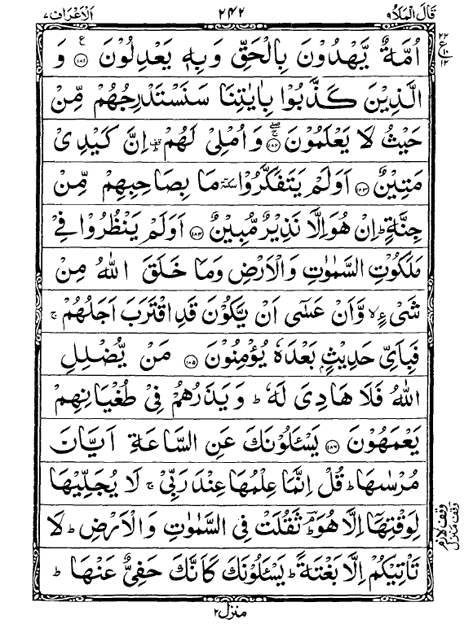 قَالَ الْمَلَاُ ٩ ٢٤٢ الْاَعْرَاف ٧
اُمَّةٌ یَّهْدُوْنَ بِالْحَقِّ وَبِهٖ یَعْدِلُوْنَ ۝١٨١ وَ
الَّذِیْنَ كَذَّبُوْا بِاٰیٰتِنَا سَنَسْتَدْرِجُهُمْ مِّنْ
حَیْثُ لَا یَعْلَمُوْنَ ۝١٨٢ وَ اُمْلِیْ لَهُمْ اِنَّ كَیْدِیْ
مَتِیْنٌ ۝١٨٣ اَوَلَمْ یَتَفَكَّرُوْا مَا بِصَاحِبِهِمْ مِّنْ
جِنَّةٍ اِنْ هُوَ اِلَّا نَذِیْرٌ مُّبِیْنٌ ۝١٨٤ اَوَلَمْ یَنْظُرُوْا فِیْ
مَلَكُوْتِ السَّمٰوٰتِ وَالْاَرْضِ وَمَا خَلَقَ اللّٰهُ مِنْ
شَیْءٍ وَّاَنْ عَسٰۤی اَنْ یَّكُوْنَ قَدِ اقْتَرَبَ اَجَلُهُمْ ۚ
فَبِاَیِّ حَدِیْثٍۭ بَعْدَهٗ یُؤْمِنُوْنَ ۝١٨٥ مَنْ یُّضْلِلِ
اللّٰهُ فَلَا هَادِیَ لَهٗ ؕ وَیَذَرُهُمْ فِیْ طُغْیَانِهِمْ
یَعْمَهُوْنَ ۝١٨٦ یَسْـَٔلُوْنَكَ عَنِ السَّاعَةِ اَیَّانَ
مُرْسٰىهَا ؕ قُلْ اِنَّمَا عِلْمُهَا عِنْدَ رَبِّیْ ۚ لَا یُجَلِّیْهَا
لِوَقْتِهَاۤ اِلَّا هُوَ ثَقُلَتْ فِی السَّمٰوٰتِ وَالْاَرْضِ ؕ لَا
تَاْتِیْكُمْ اِلَّا بَغْتَةً ؕ یَسْـَٔلُوْنَكَ كَاَنَّكَ حَفِیٌّ عَنْهَا ؕ
منزل ٢